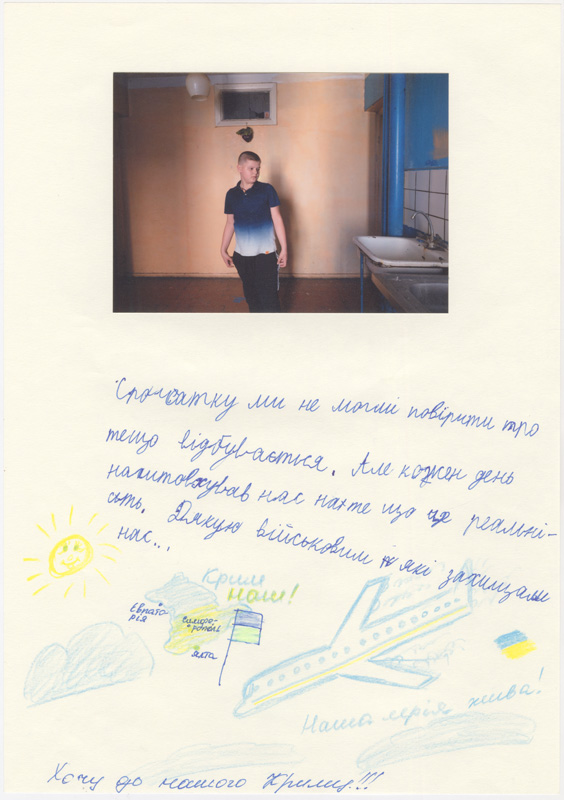 Спочатку ми не могли повірити про
тещо відбувається. Але кожен день
наштовхував нас нахте що це реальні-
сть. Дякую військовим які захищали
нас...
Крим
наш!
Євпато
рія
Сімфе-
рополь
Ялта
Наша мрія жива!
Хочу до нашого Криму!!!